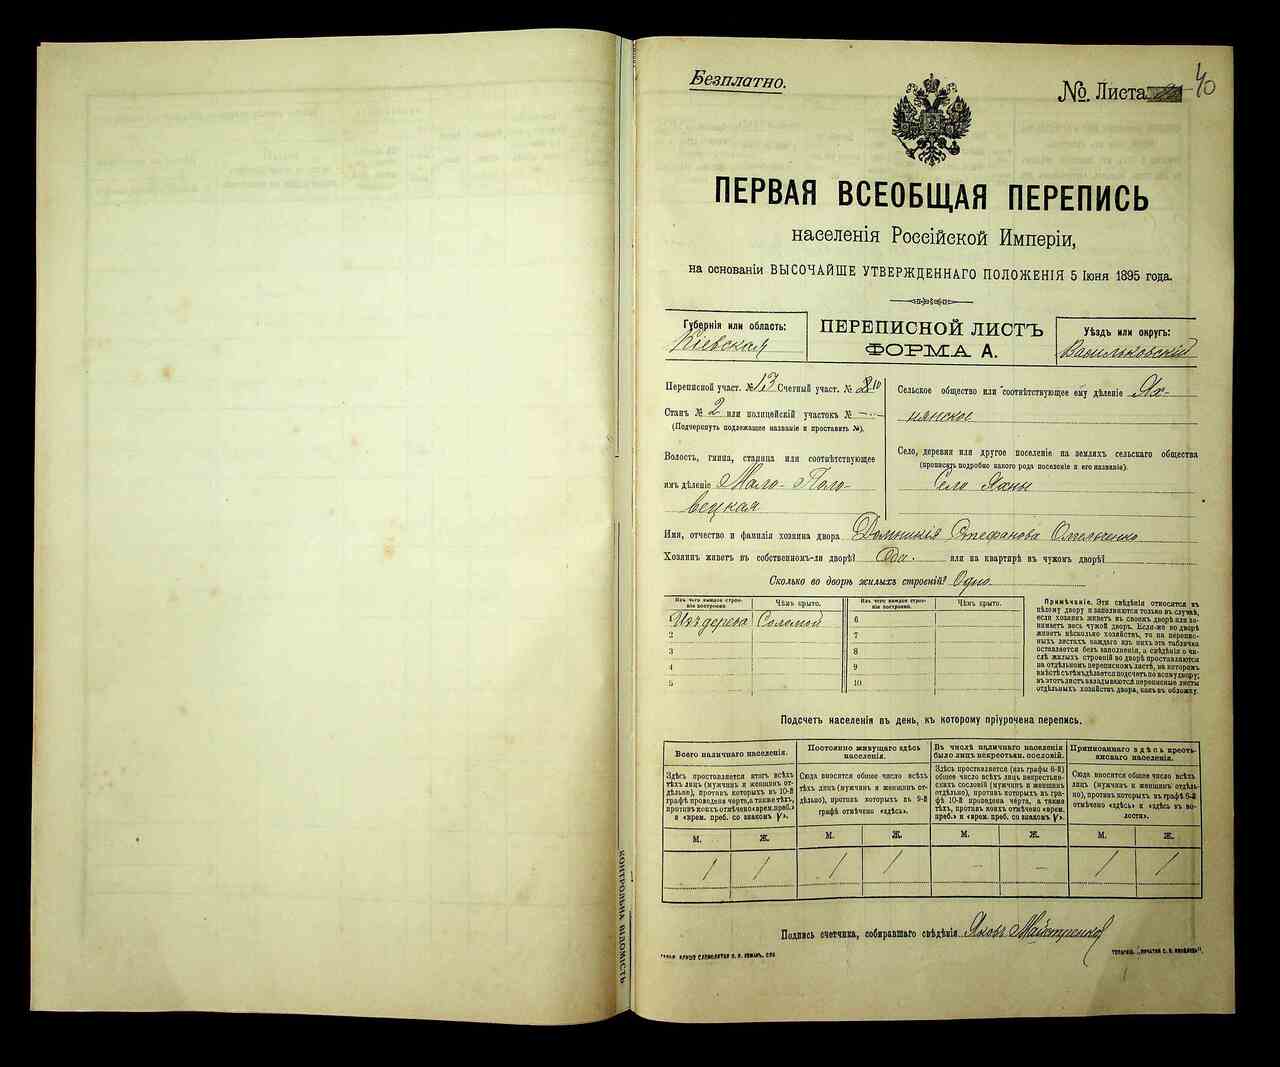 Безплатно.
№. Листа 40
ПЕРВАЯ ВСЕОБЩАЯ ПЕРЕПИСЬ
населенія Россійской Имперіи,
на основаніи ВЫСОЧАЙШЕ УТВЕРЖДЕННАГО ПОЛОЖЕНІЯ 5 Іюня 1895 года.
Губернія или область:
Кіевская
ПЕРЕПИСНОЙ ЛИСТЪ
ФОРМА А.
Уѣздъ или округъ:
Васильковскій
Переписной участ. № 13 Счетный участ. № 10
Станъ № 2 или полицейскій участокъ № —
(Подчеркнуть подлежащее названіе и проставить №).
Волость, гмина, станица или соотвѣтствующее
имъ дѣленіе Мало-Поло-
вецкая
Сельское общество или соотвѣтствующее ему дѣленіе Ях-
нянское
Село, деревня или другое поселеніе на земляхъ сельскаго общества
(прописать подробно какого рода поселеніе и его названіе).
Село Яхны
Имя, отчество и фамилія хозяина двора Домникія Стефанова Омельченко
Хозяинъ живетъ въ собственномъ-ли дворѣ? Да. или на квартирѣ въ чужомъ дворѣ?
Сколько во дворѣ жилыхъ строеній? Одно.
Изъ чего каждое строе-
ніе построено.
Чѣмъ крыто.
Изъ чего каждое строе-
ніе построено.
Чѣмъ крыто.
1 Изъ дерева Соломой 6
2 7
3 8
4 9
5 10
Примѣчаніе. Эти свѣдѣнія относятся къ
цѣлому двору и заполняются только въ случаѣ,
если хозяинъ живетъ въ своемъ дворѣ или за-
нимаетъ весь чужой дворъ. Если-же во дворѣ
живетъ нѣсколько хозяйствъ, то на перепис-
ныхъ листахъ каждаго изъ нихъ эта табличка
оставляется безъ заполненія, а свѣдѣнія о чи-
слѣ жилыхъ строеній во дворѣ проставляются
на отдѣльномъ переписномъ листѣ, на которомъ
вмѣстѣ съ тѣмъ дѣлается подсчетъ по всему двору;
въ этотъ листъ вкладываются переписные листы
отдѣльныхъ хозяйствъ двора, какъ въ обложку.
Подсчетъ населенія въ день, къ которому пріурочена перепись.
Всего наличнаго населенія.
Постоянно живущаго здѣсь
населенія.
Въ числѣ наличнаго населенія
было лицъ некрестьян. сословій.
Приписаннаго здѣсь кресть-
янскаго населенія.
Здѣсь проставляется итогъ всѣхъ
тѣхъ лицъ (мужчинъ и женщинъ от-
дѣльно), противъ которыхъ въ 10-й
графѣ проведена черта, а также тѣхъ,
противъ коихъ отмѣчено «врем. преб.»
и «врем. преб. со знакомъ V».
Сюда вносится общее число всѣхъ
тѣхъ лицъ (мужчинъ и женщинъ от-
дѣльно), противъ которыхъ въ 9-й
графѣ отмѣчено «здѣсь».
Здѣсь проставляется (изъ графы 6-й)
общее число всѣхъ лицъ некрестьян-
скихъ сословій (мужчинъ и женщинъ
отдѣльно), противъ которыхъ въ гра-
фѣ 10-й проведена черта, а также
тѣхъ, противъ коихъ отмѣчено «врем.
преб.» и «врем. преб. со знакомъ V».
Сюда вносится общее число всѣхъ
лицъ (мужчинъ и женщинъ отдѣль-
но), противъ которыхъ въ графѣ 8-й
отмѣчено «здѣсь» и «здѣсь въ во-
лости».
М. Ж. М. Ж. М. Ж. М. Ж.
1 1 1 1 – – 1 1
Подпись счетчика, собиравшаго свѣдѣнія Яковъ Майстренко
КОНТРОЛЬНА ВІДОМІСТЬ